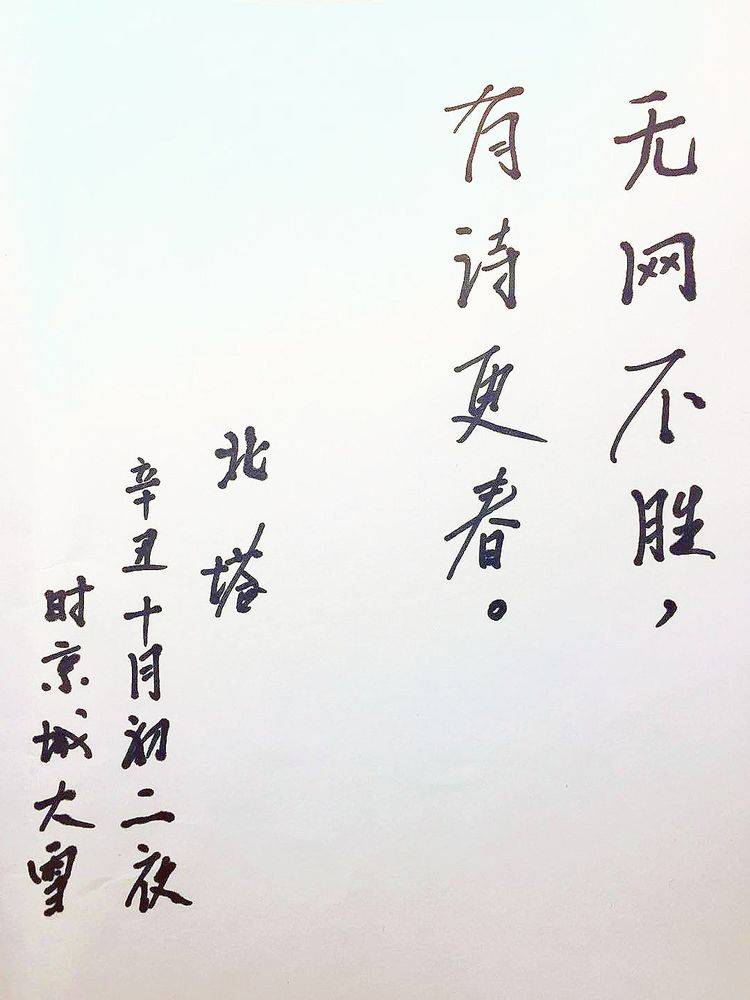 无网不胜，
有诗更春。
北塔
辛丑十月初二夜
时京城大雪